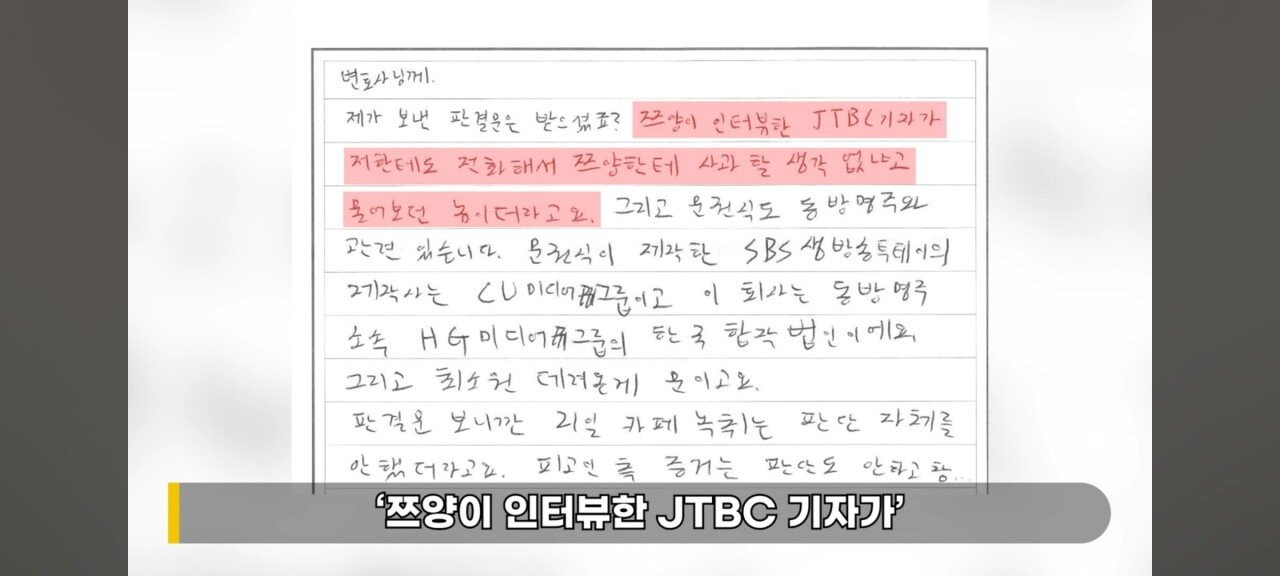 변호사님께.
제가 보낸 판결문은 받으셨죠? 쯔양이 인터뷰한 JTBC기자가
저한테도 전화해서 쯔양한테 사과 할 생각 없냐고
물어보던 놈이더라고요. 그리고 문전식도 동방명주와
관련 있습니다. 문전식이 제작한 SBS생방송투데이의
제작사는 CU미디어그룹이고 이 회사는 동방명주
소속 HG미디어그룹의 한국 합작 법인이에요.
그리고 최소원 데려온게 문이고요.
판결문 보니깐 리일 카페 녹취는 판단 자체를
안했더라고요. 피고인 측 증거는 판단도 안하고 참...
‘쯔양이 인터뷰한 JTBC 기자가’